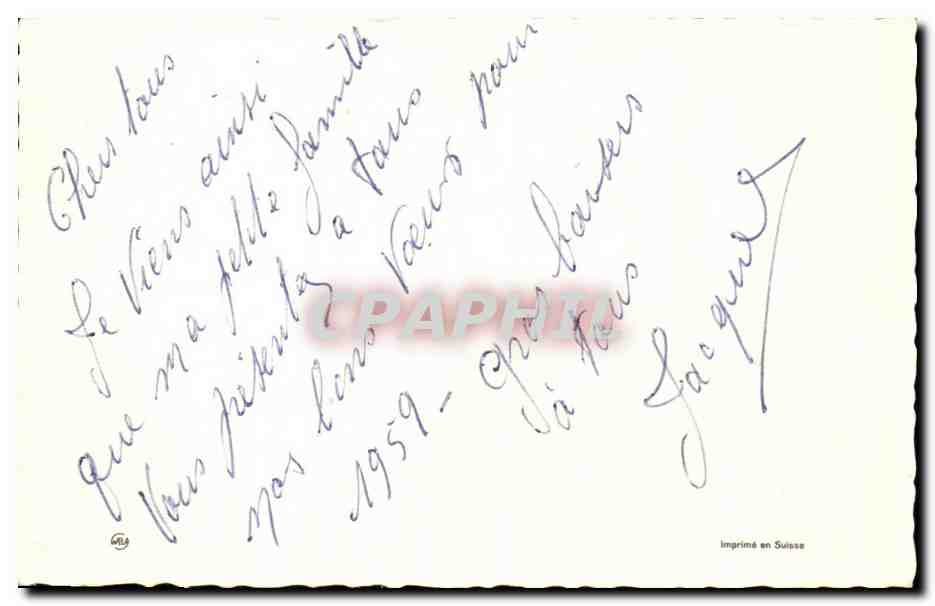 Chers tous
Je viens ainsi
que ma petite famille
vous présenter a tous
nos bons vœux pour
1959 - Gros baisers
à tous
Jacques
CPAPHIL
WELA
Imprimé en Suisse